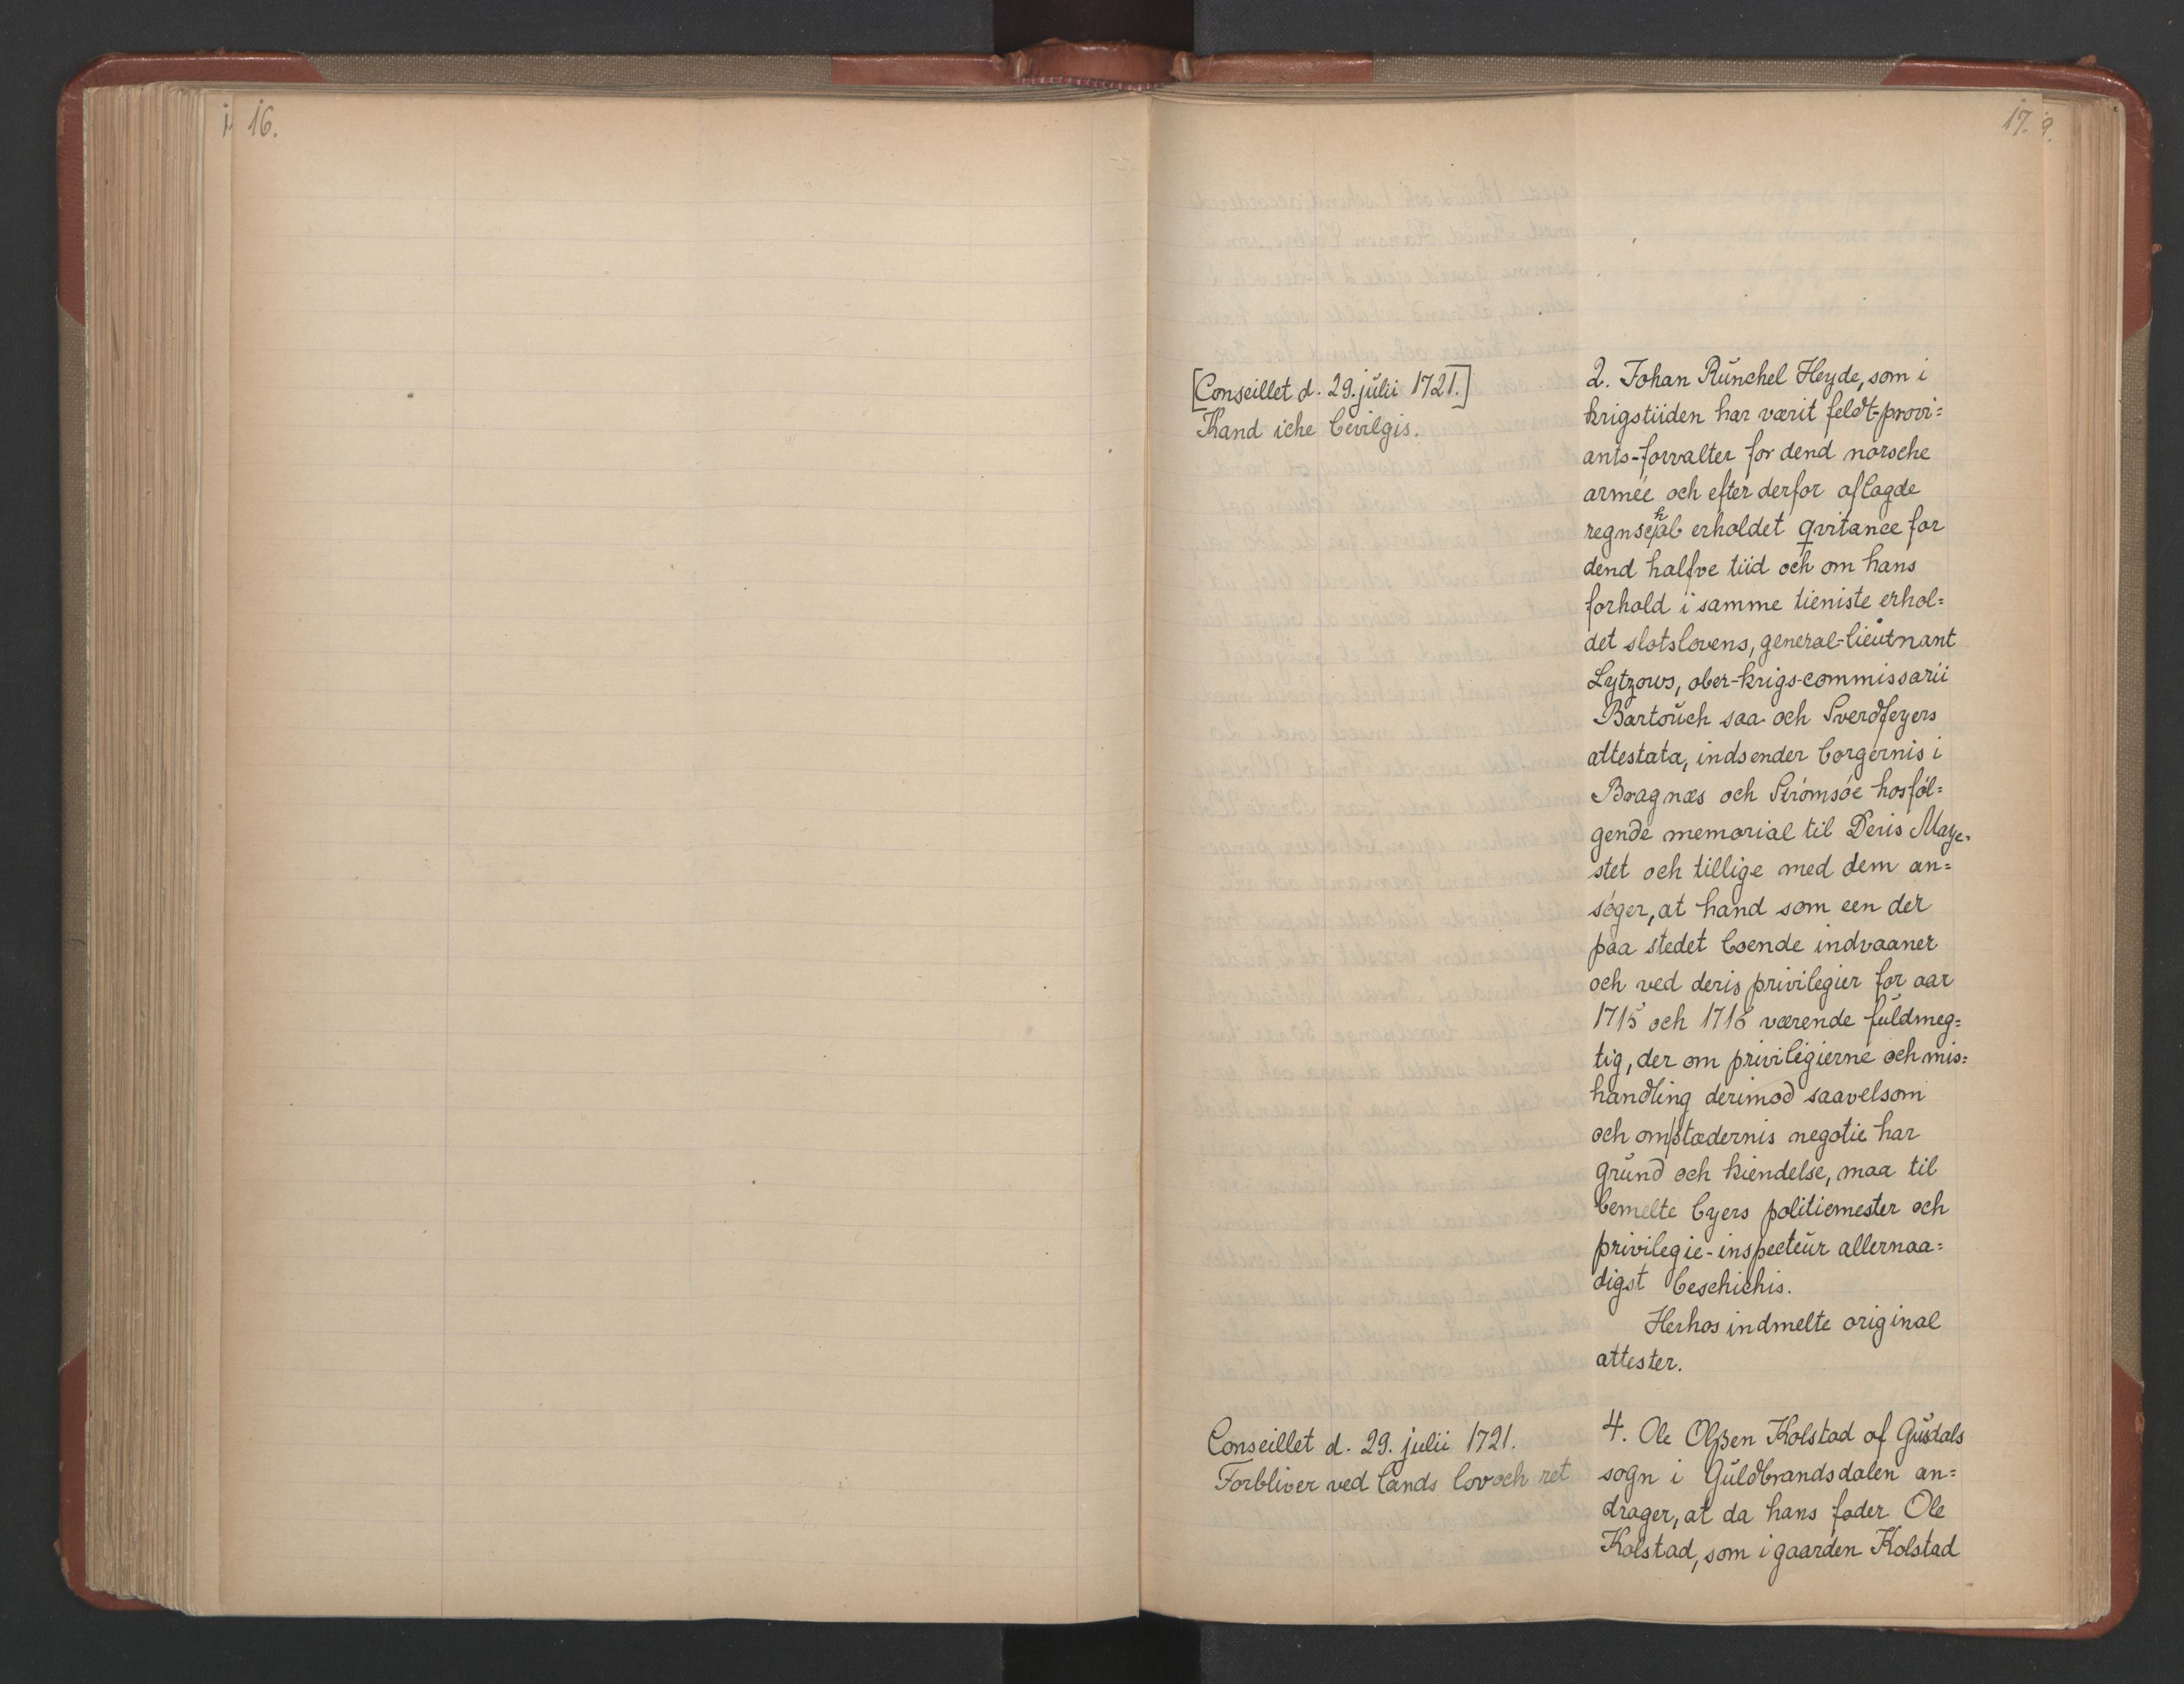 16.
17.
9.
[Conseillet d. 29. julii 1721.]
Kand iche bevilgis.
2. Johan Rünchel Heyde, som i
krigstiiden har værit feldt-provi=
ants-forvalter for dend norsche
armée och efter derfor aflagde
regnschab erholdet qvitance for
dend halfve tiid och om hans
forhold i samme tieniste erhol=
det slotslovens, general-lieutnant
Lytzows, ober-krigs-commissarii
Bartouch saa och Sverdfeyers
attestata, indsender borgernis i
Bragnæs och Strømsøe hosføl=
gende memorial til Deris Maye=
stet och tillige med dem an=
søger, at hand som een der
paa stedet boende indvaaner
och ved deris privilegier for aar
1715 och 1716 værende fuldmeg=
tig, der om privilegierne och mis=
handling derimod saavelsom
och om stædernis negotie har
grund och kiendelse, maa til
bemelte byers politiemester och
privilegie-inspecteur allernaa=
digst beschichis.
Herhos indmelte original
attester.
Conseillet d. 29. julii 1721.
Forbliver ved lands lov och ret
4. Ole Olßen Kolstad af Gusdals
sogn i Guldbrandsdalen an=
drager, at da hans fader Ole
Kolstad, som i gaarden Kolstad